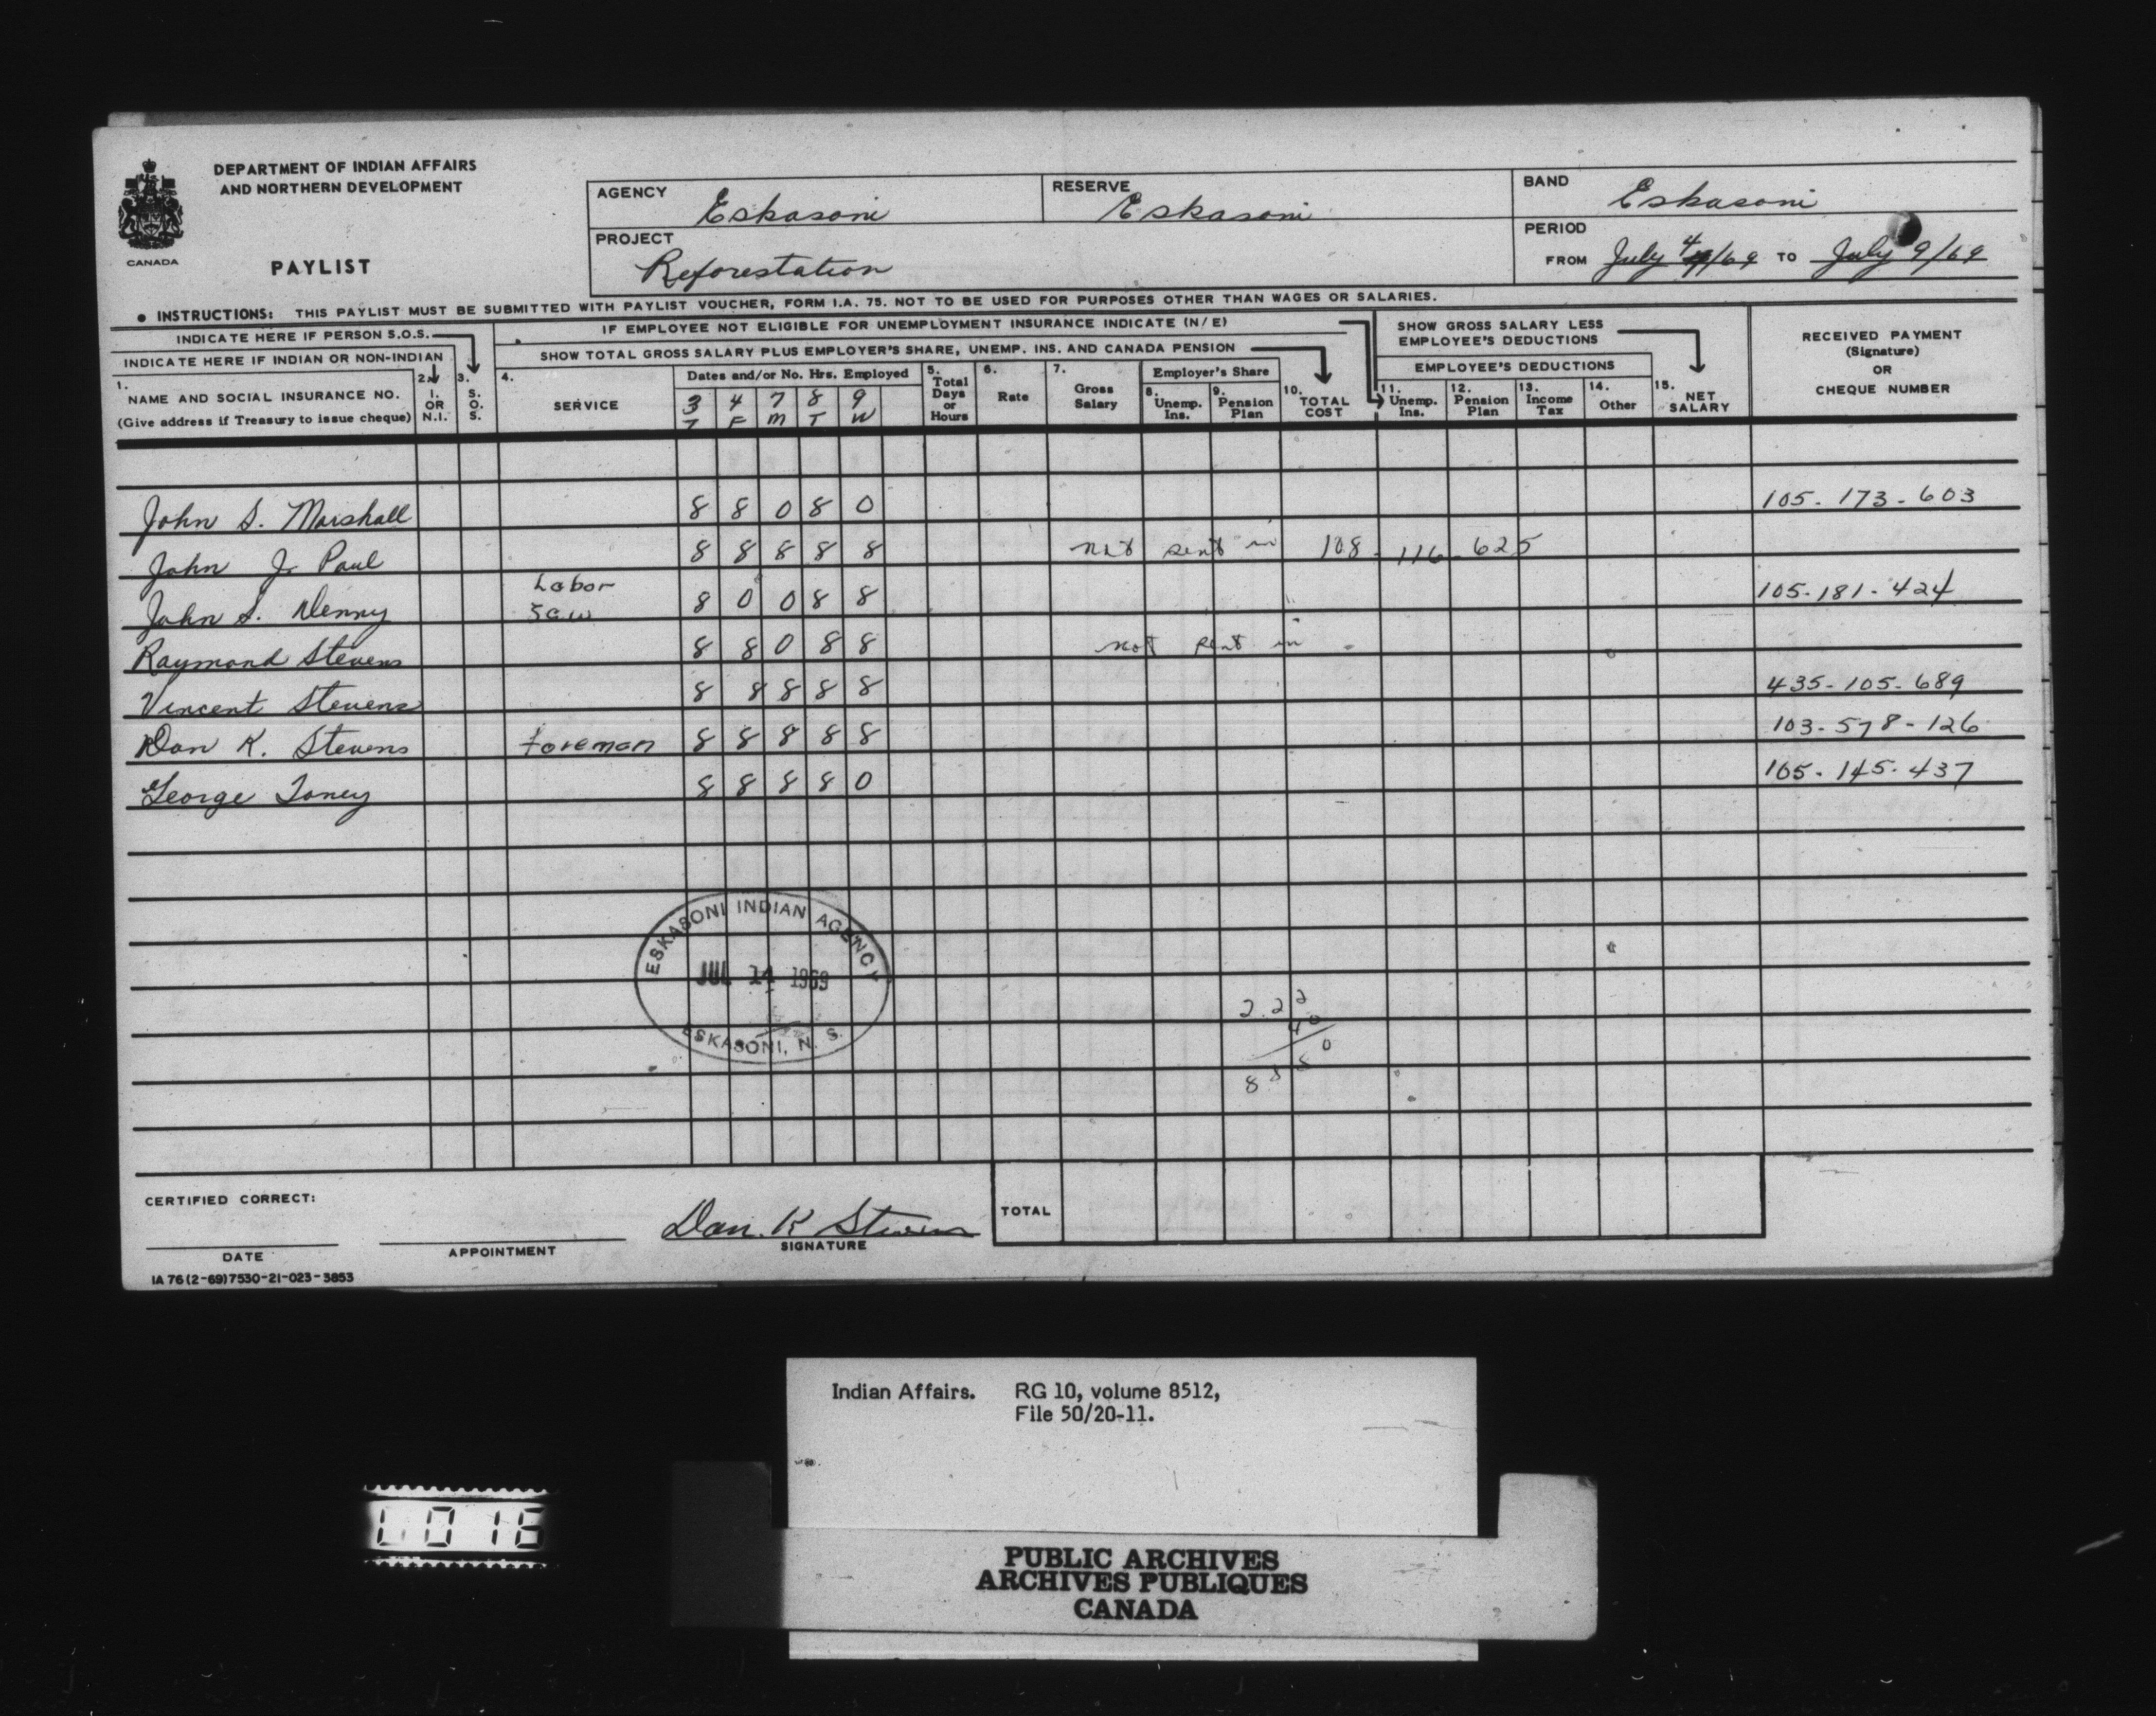 DEPARTMENT OF INDIAN AFFAIRS
AND NORTHERN DEVELOPMENT
CANADA
PAYLIST
AGENCY Eskasoni
RESERVE Eskasoni
BAND Eskasoni
PROJECT Reforestation
PERIOD
FROM July 4/69 TO July 9/69
• INSTRUCTIONS: THIS PAYLIST MUST BE SUBMITTED WITH PAYLIST VOUCHER, FORM I.A. 75. NOT TO BE USED FOR PURPOSES OTHER THAN WAGES OR SALARIES.
INDICATE HERE IF PERSON S.O.S.
INDICATE HERE IF INDIAN OR NON-INDIAN
IF EMPLOYEE NOT ELIGIBLE FOR UNEMPLOYMENT INSURANCE INDICATE (N/E)
SHOW TOTAL GROSS SALARY PLUS EMPLOYER'S SHARE, UNEMP. INS. AND CANADA PENSION
SHOW GROSS SALARY LESS
EMPLOYEE'S DEDUCTIONS
RECEIVED PAYMENT
(Signature)
OR
CHEQUE NUMBER
1.
NAME AND SOCIAL INSURANCE NO.
(Give address if Treasury to issue cheque)
2.
I.
OR
N.I.
3.
S.
O.
S.
4.
SERVICE
Dates and/or No. Hrs. Employed
3 4 7 8 9
T F M T W
5.
Total
Days
or
Hours
6.
Rate
7.
Gross
Salary
Employer's Share
8.
Unemp.
Ins.
9.
Pension
Plan
10.
TOTAL
COST
EMPLOYEE'S DEDUCTIONS
11.
Unemp.
Ins.
12.
Pension
Plan
13.
Income
Tax
14.
Other
15.
NET
SALARY
John S. Marshall 8 8 0 8 0 105-173-603
John J. Paul 8 8 8 8 8 not sent in 108-116-625
John S. Denny Labor Saw 8 0 0 8 8 105-181-424
Raymond Stevens 8 8 0 8 8 not sent in
Vincent Stevens 8 8 8 8 8 435-105-689
Dan K. Stevens foreman 8 8 8 8 8 103-578-126
George Toney 8 8 8 8 0 105-145-437
ESKASONI INDIAN AGENCY
JUL 14 1969
ESKASONI, N. S.
2.22
40
88 80
CERTIFIED CORRECT:
DATE
APPOINTMENT
Dan. K Stevens
SIGNATURE
TOTAL
IA 76 (2-69) 7530-21-023-3853
Indian Affairs. RG 10, volume 8512,
File 50/20-11.
PUBLIC ARCHIVES
ARCHIVES PUBLIQUES
CANADA